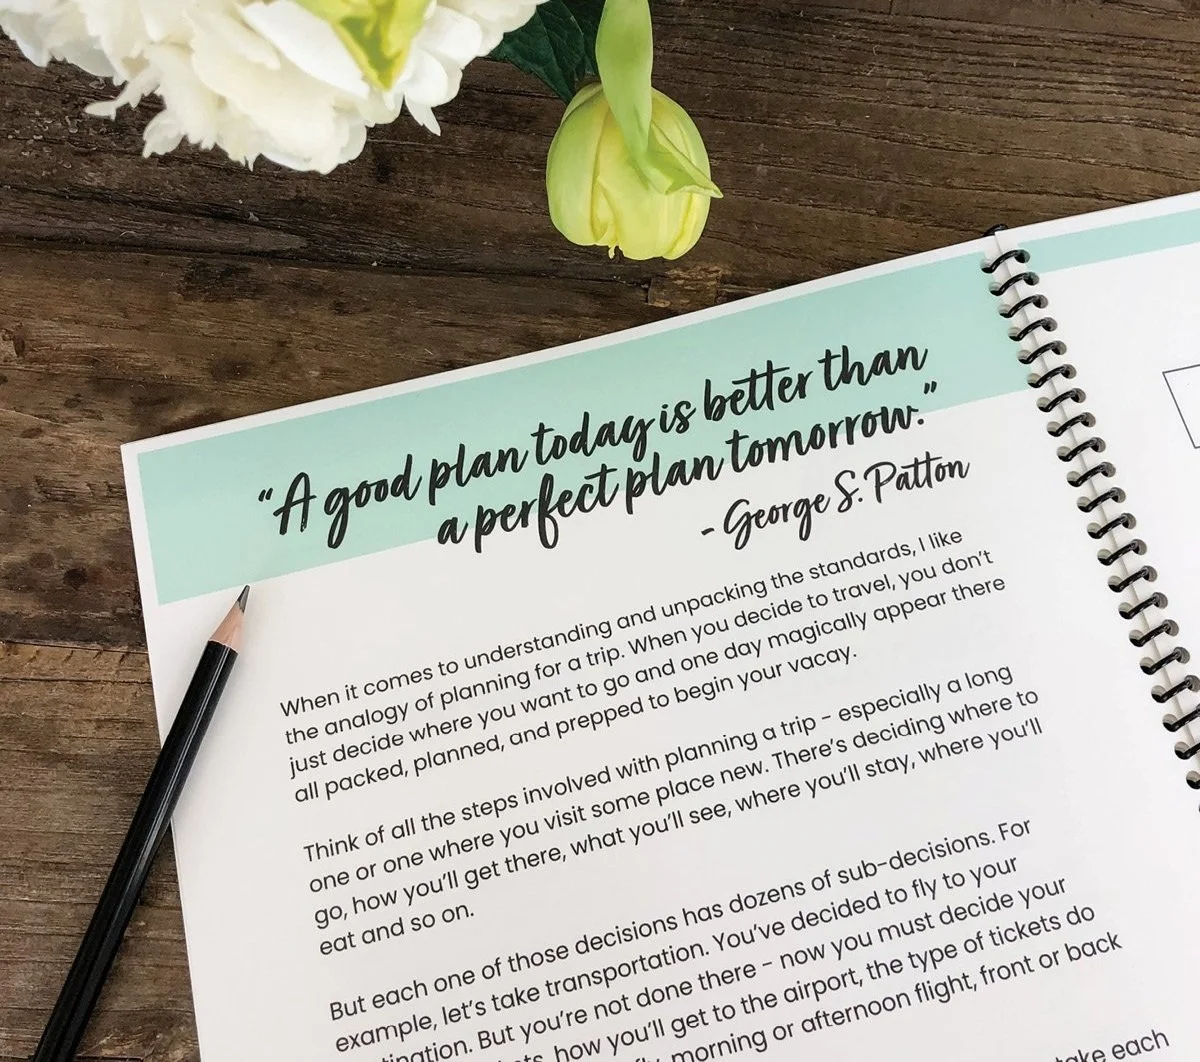 “A good plan today is better than
a perfect plan tomorrow.”
- George S. Patton
When it comes to understanding and unpacking the standards, I like
the analogy of planning for a trip. When you decide to travel, you don’t
just decide where you want to go and one day magically appear there
all packed, planned, and prepped to begin your vacay.
Think of all the steps involved with planning a trip – especially a long
one or one where you visit some place new. There’s deciding where to
go, how you’ll get there, what you’ll see, where you’ll stay, where you’ll
eat and so on.
But each one of those decisions has dozens of sub-decisions. For
example, let’s take transportation. You’ve decided to fly to your
But you’re not done there – now you must decide your
how you’ll get to the airport, the type of tickets do
morning or afternoon flight, front or back
take each